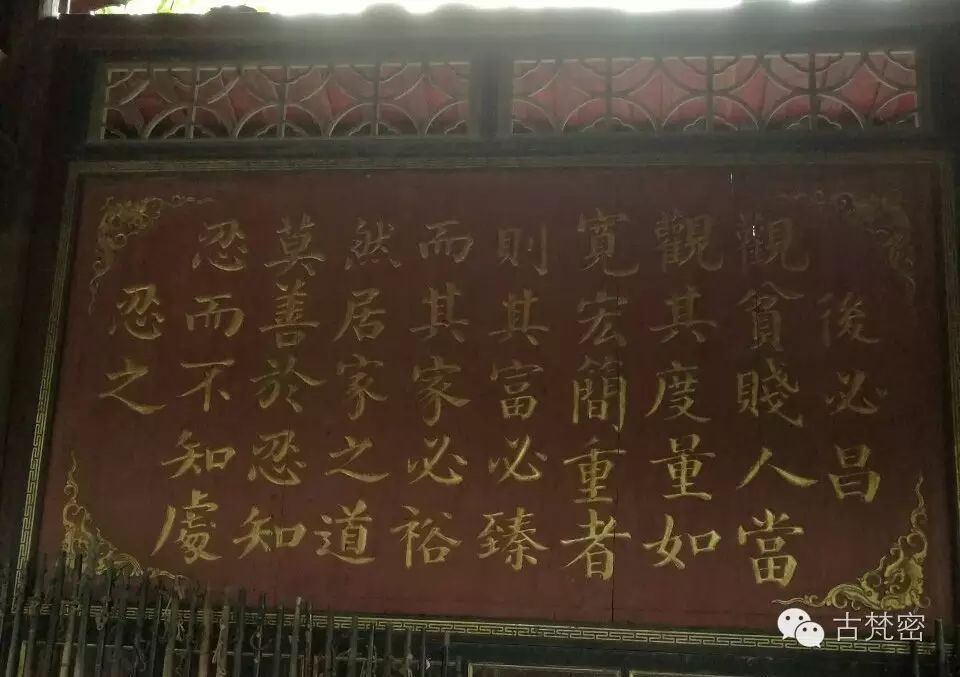 後必昌
觀貧賤人當
觀其度量如
寬宏簡重者
則其富必臻
而其家必裕
然居家之道
莫善於忍知
忍而不知處
忍之
古梵密